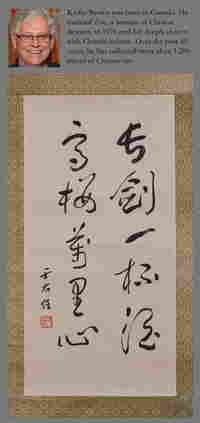 was born in Canada. He
married Zoe, a woman of Chinese
descent, in 1976 and fell deeply in love
with Chinese culture. Over the past 40
years, he has collected more than 1,200
pieces of Chinese art.
長劍一杯酒
高樓萬里心
于右任